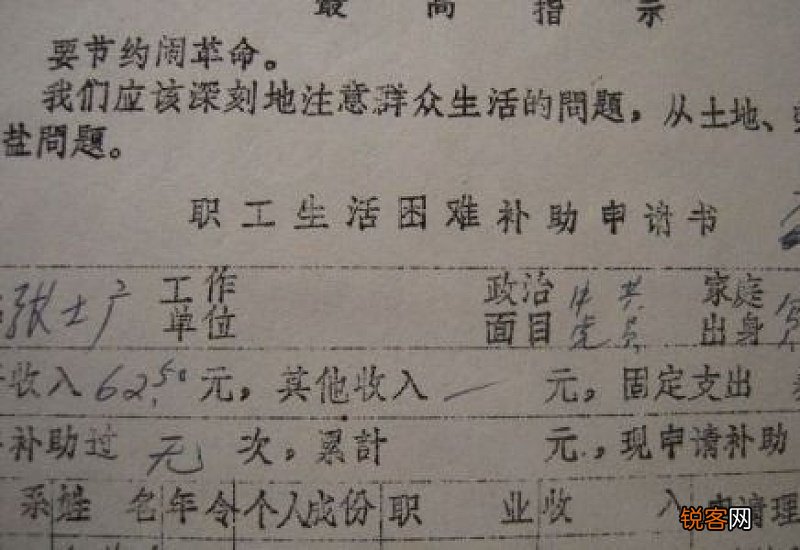 最高指示
要节约闹革命。
我们应该深刻地注意群众生活的問題，从土地、
盐問題。
职工生活困难补助申请书
张士广 工作单位 政治面目 中共党员 家庭出身
收入 62.50 元，其他收入 — 元，固定支出
补助过 无 次，累計 元，现申请补助
系 姓名 年令 个人成份 职业 收入 申请理
锐客网